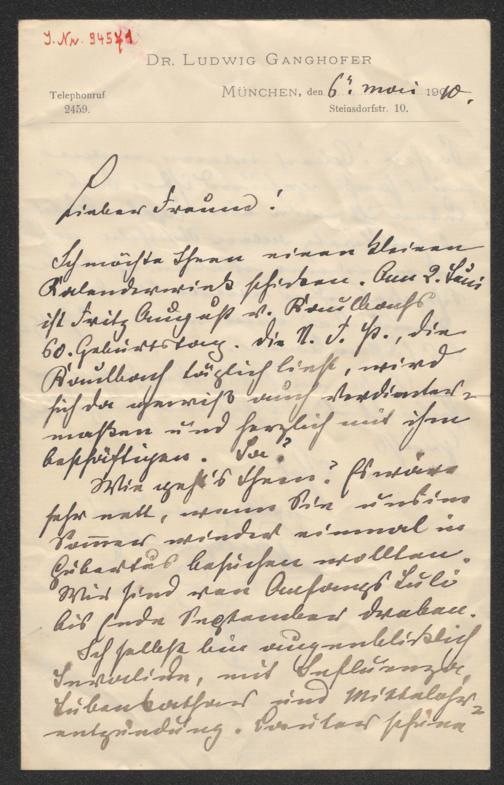 J. Nr. 94571
DR. LUDWIG GANGHOFER
Telephonruf
2459.
MÜNCHEN, den 6ten Mai 1910.
Steinsdorfstr. 10.
Lieber Freund!
Ich möchte Ihnen einen kleinen
Kalenderwink schicken. Am 2. Juni
ist Fritz August v. Kaulbachs
60. Geburtstag. Die N. F. P., die
Kaulbach täglich liest, wird
sich da gewiß auch verdienter-
maßen und herzlich mit ihm
beschäftigen. Ja?
Wie geht's Ihnen? Es wäre
sehr nett, wenn Sie uns im
Sommer wieder einmal in
Hubertus besuchen wollten.
Wir sind von Anfangs Juli
bis Ende September droben.
Ich selbst bin augenblicklich
Invalide, mit Influenza,
Tubenkatharr und Mittelohr-
entzündung. Lauter schöne